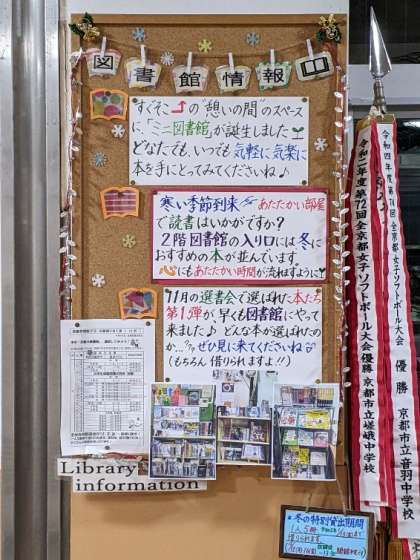 図書館情報
すぐそこの"憩いの間"のスペース
に、「ミニ図書館」が誕生しました
どなたでも、いつでも気軽に気楽に
本を手にとってみてくださいね♪
寒い季節到来 あたたかい部屋
で読書はいかがですか？
2階図書館の入り口には冬に
おすすめの本が並んでいます。
心にもあたたかい時間が流れますように
11月の選書会で選ばれた本たち
第1弾が、早くも図書館にやって
来ました♪ どんな本が選ばれたの
か…？ ぜひ見に来てくださいね
(もちろん 借りられますよ!!)
Library
information
冬の特別貸出期間
1人5冊
借りられます
令和二年度第72回全京都女子ソフトボール大会 優勝 京都市立嵯峨中学校
令和四年度第74回全京都女子ソフトボール大会 優勝 京都市立音羽中学校